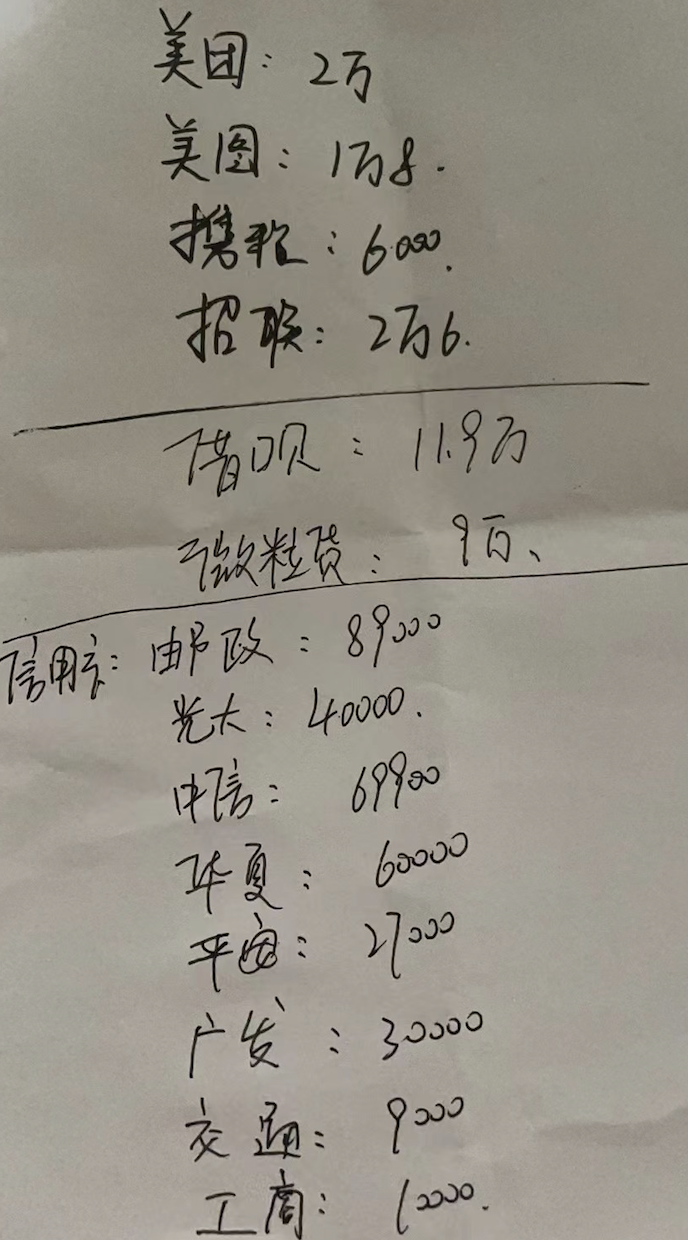 美团：2万
美图：1万8.
携程：6000.
招联：2万6.
借呗：11.9万
微粒贷：9百、
信用卡：邮政：89000
光大：40000.
中信：69900
华夏：60000
平安：27000
广发：30000
交通：9000
工商：10000.